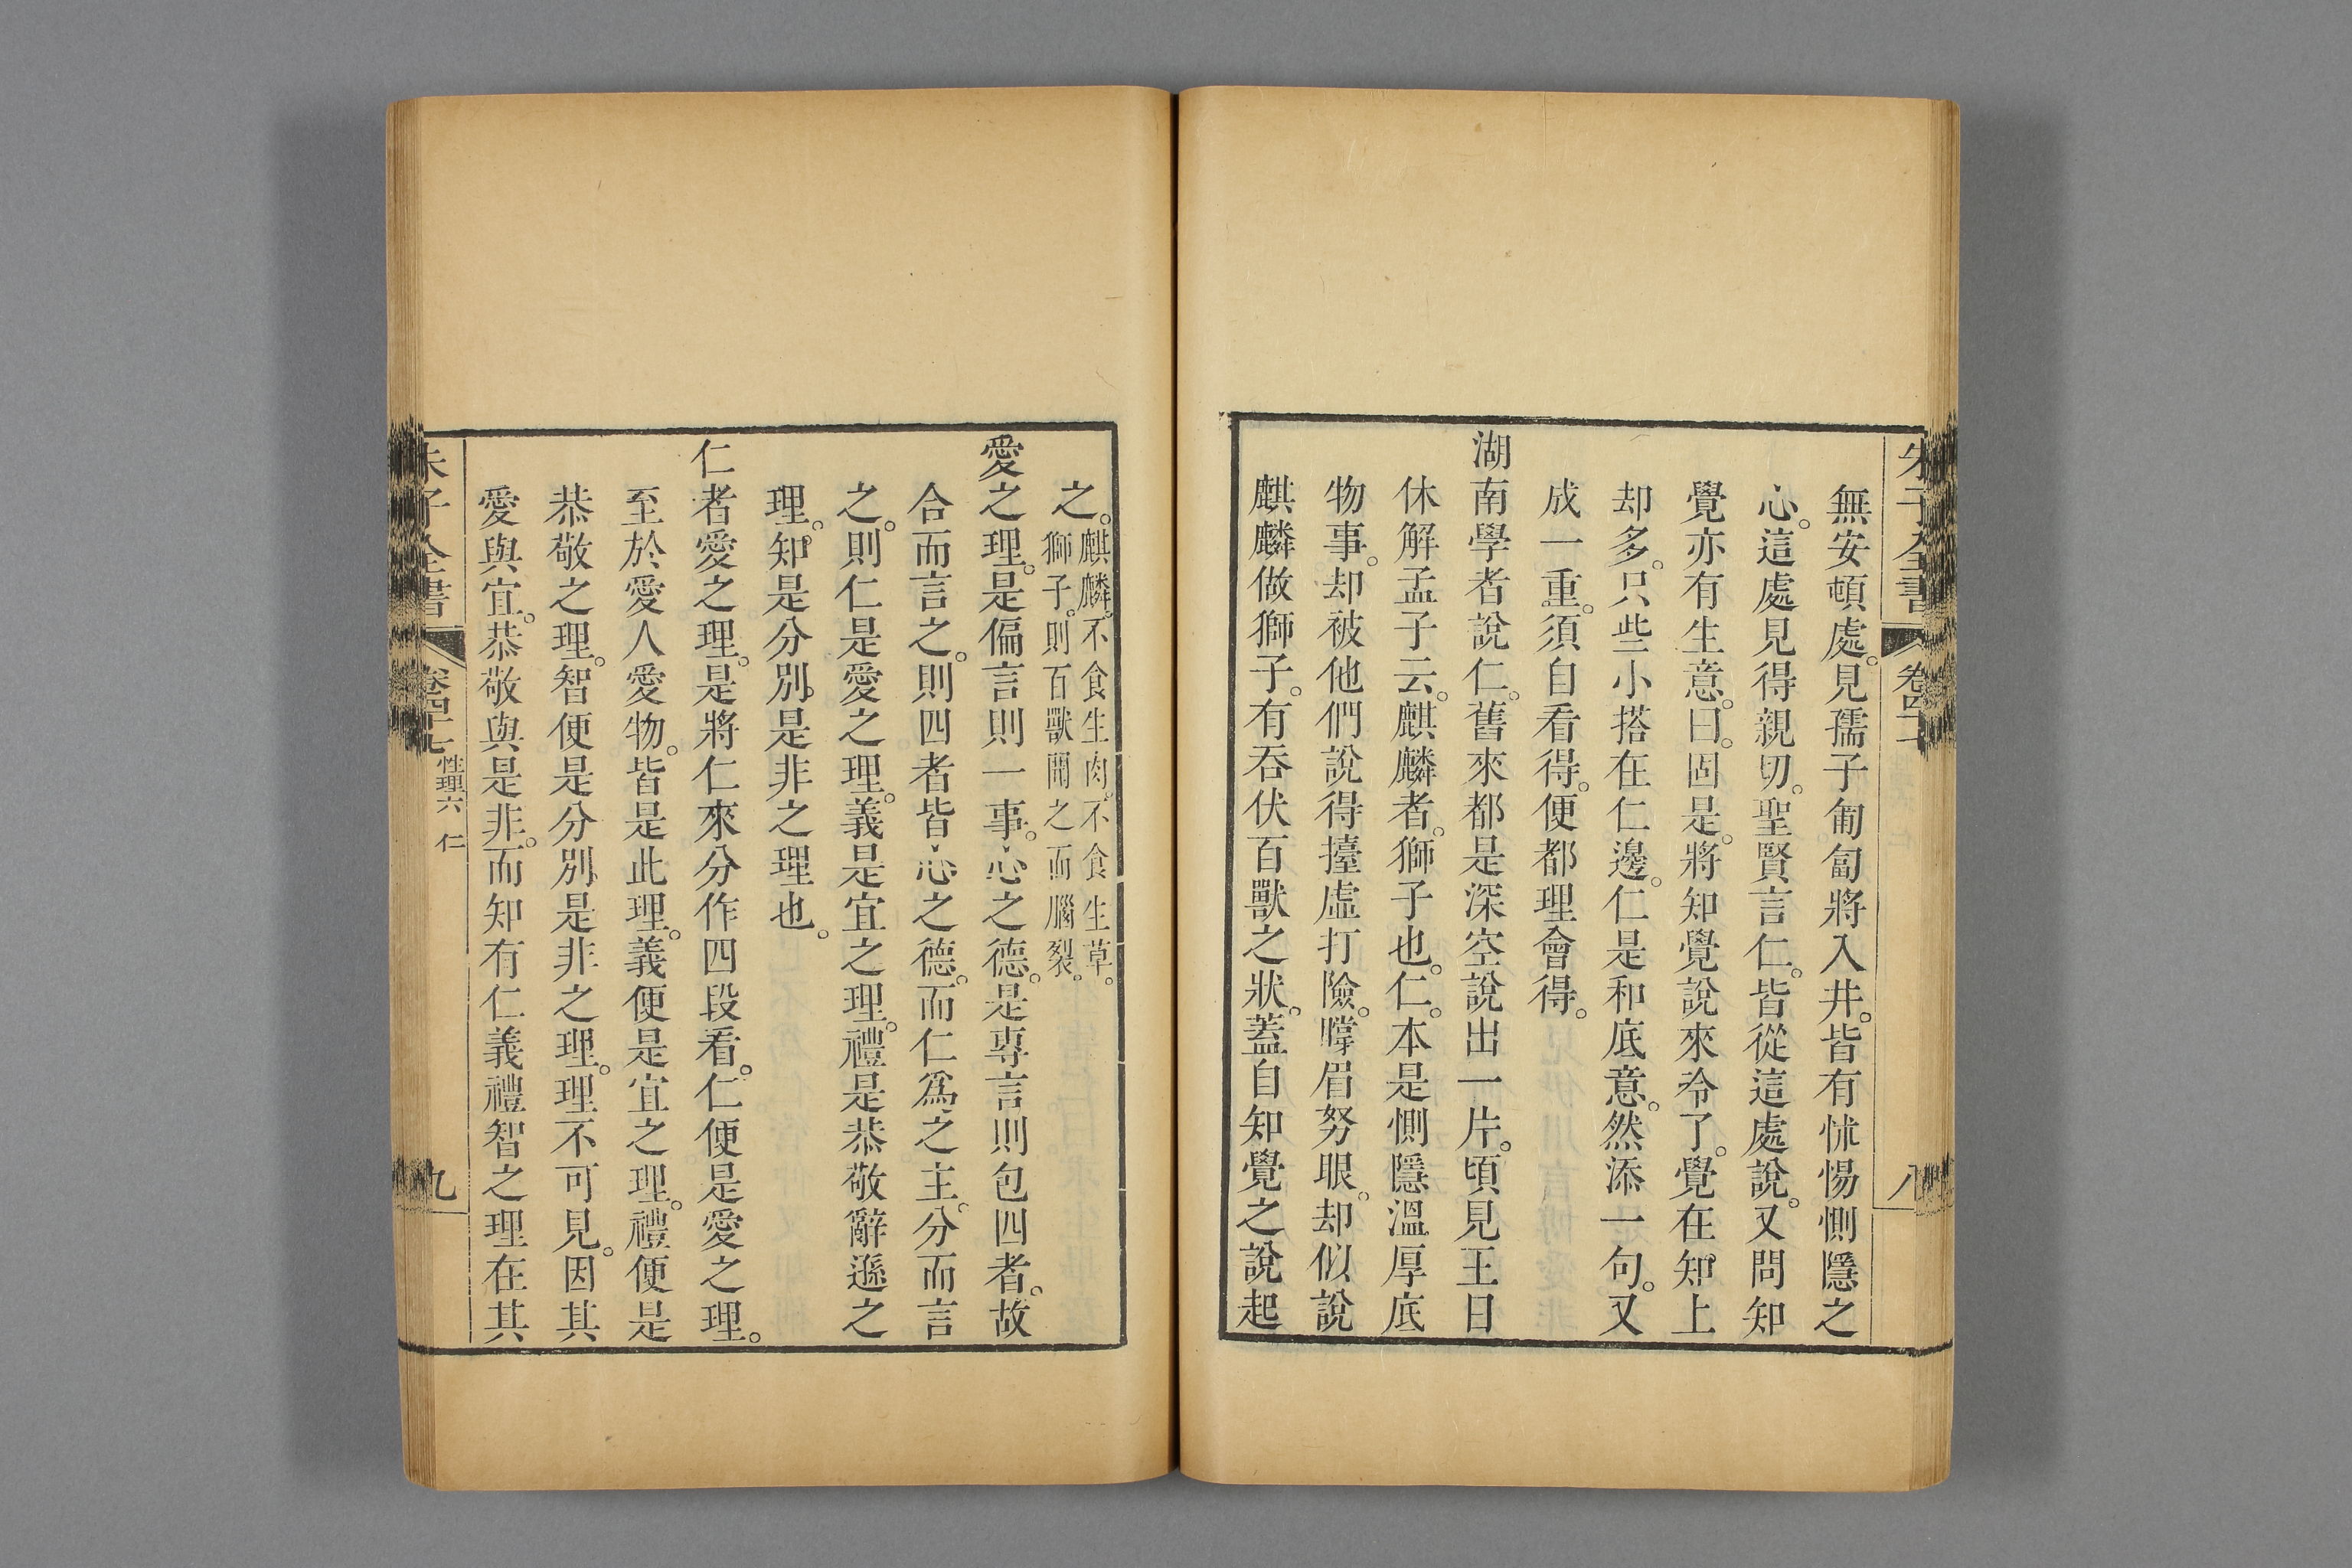 朱子全書 卷四十 八
無安頓處。見孺子匍匐將入井。皆有怵惕惻隱之
心。這處見得親切。聖賢言仁。皆從這處說。又問知
覺亦有生意。曰。固是。將知覺說來冷了。覺在知上
却多。只些小搭在仁邊。仁是和底意。然添一句。又
成一重。須自看得。便都理會得。
湖南學者說仁。舊來都是深空說出一片。頃見王日
休解孟子云。麒麟者。獅子也。仁。本是惻隱溫厚底
物事。却被他們說得擡虛打險。瞠眉努眼。却似說
麒麟做獅子。有吞伏百獸之狀。蓋自知覺之說起
之。麒麟。不食生肉。不食生草。
獅子。則百獸聞之而腦裂。
愛之理。是偏言則一事。心之德。是專言則包四者。故
合而言之。則四者皆心之德。而仁爲之主。分而言
之。則仁是愛之理。義是宜之理。禮是恭敬辭遜之
理。知是分別是非之理也。
仁者愛之理。是將仁來分作四段看。仁便是愛之理。
至於愛人愛物。皆是此理。義便是宜之理。禮便是
恭敬之理。智便是分別是非之理。理不可見。因其
愛與宜。恭敬與是非。而知有仁義禮智之理在其
朱子全書 卷四十七 性理六 仁 九